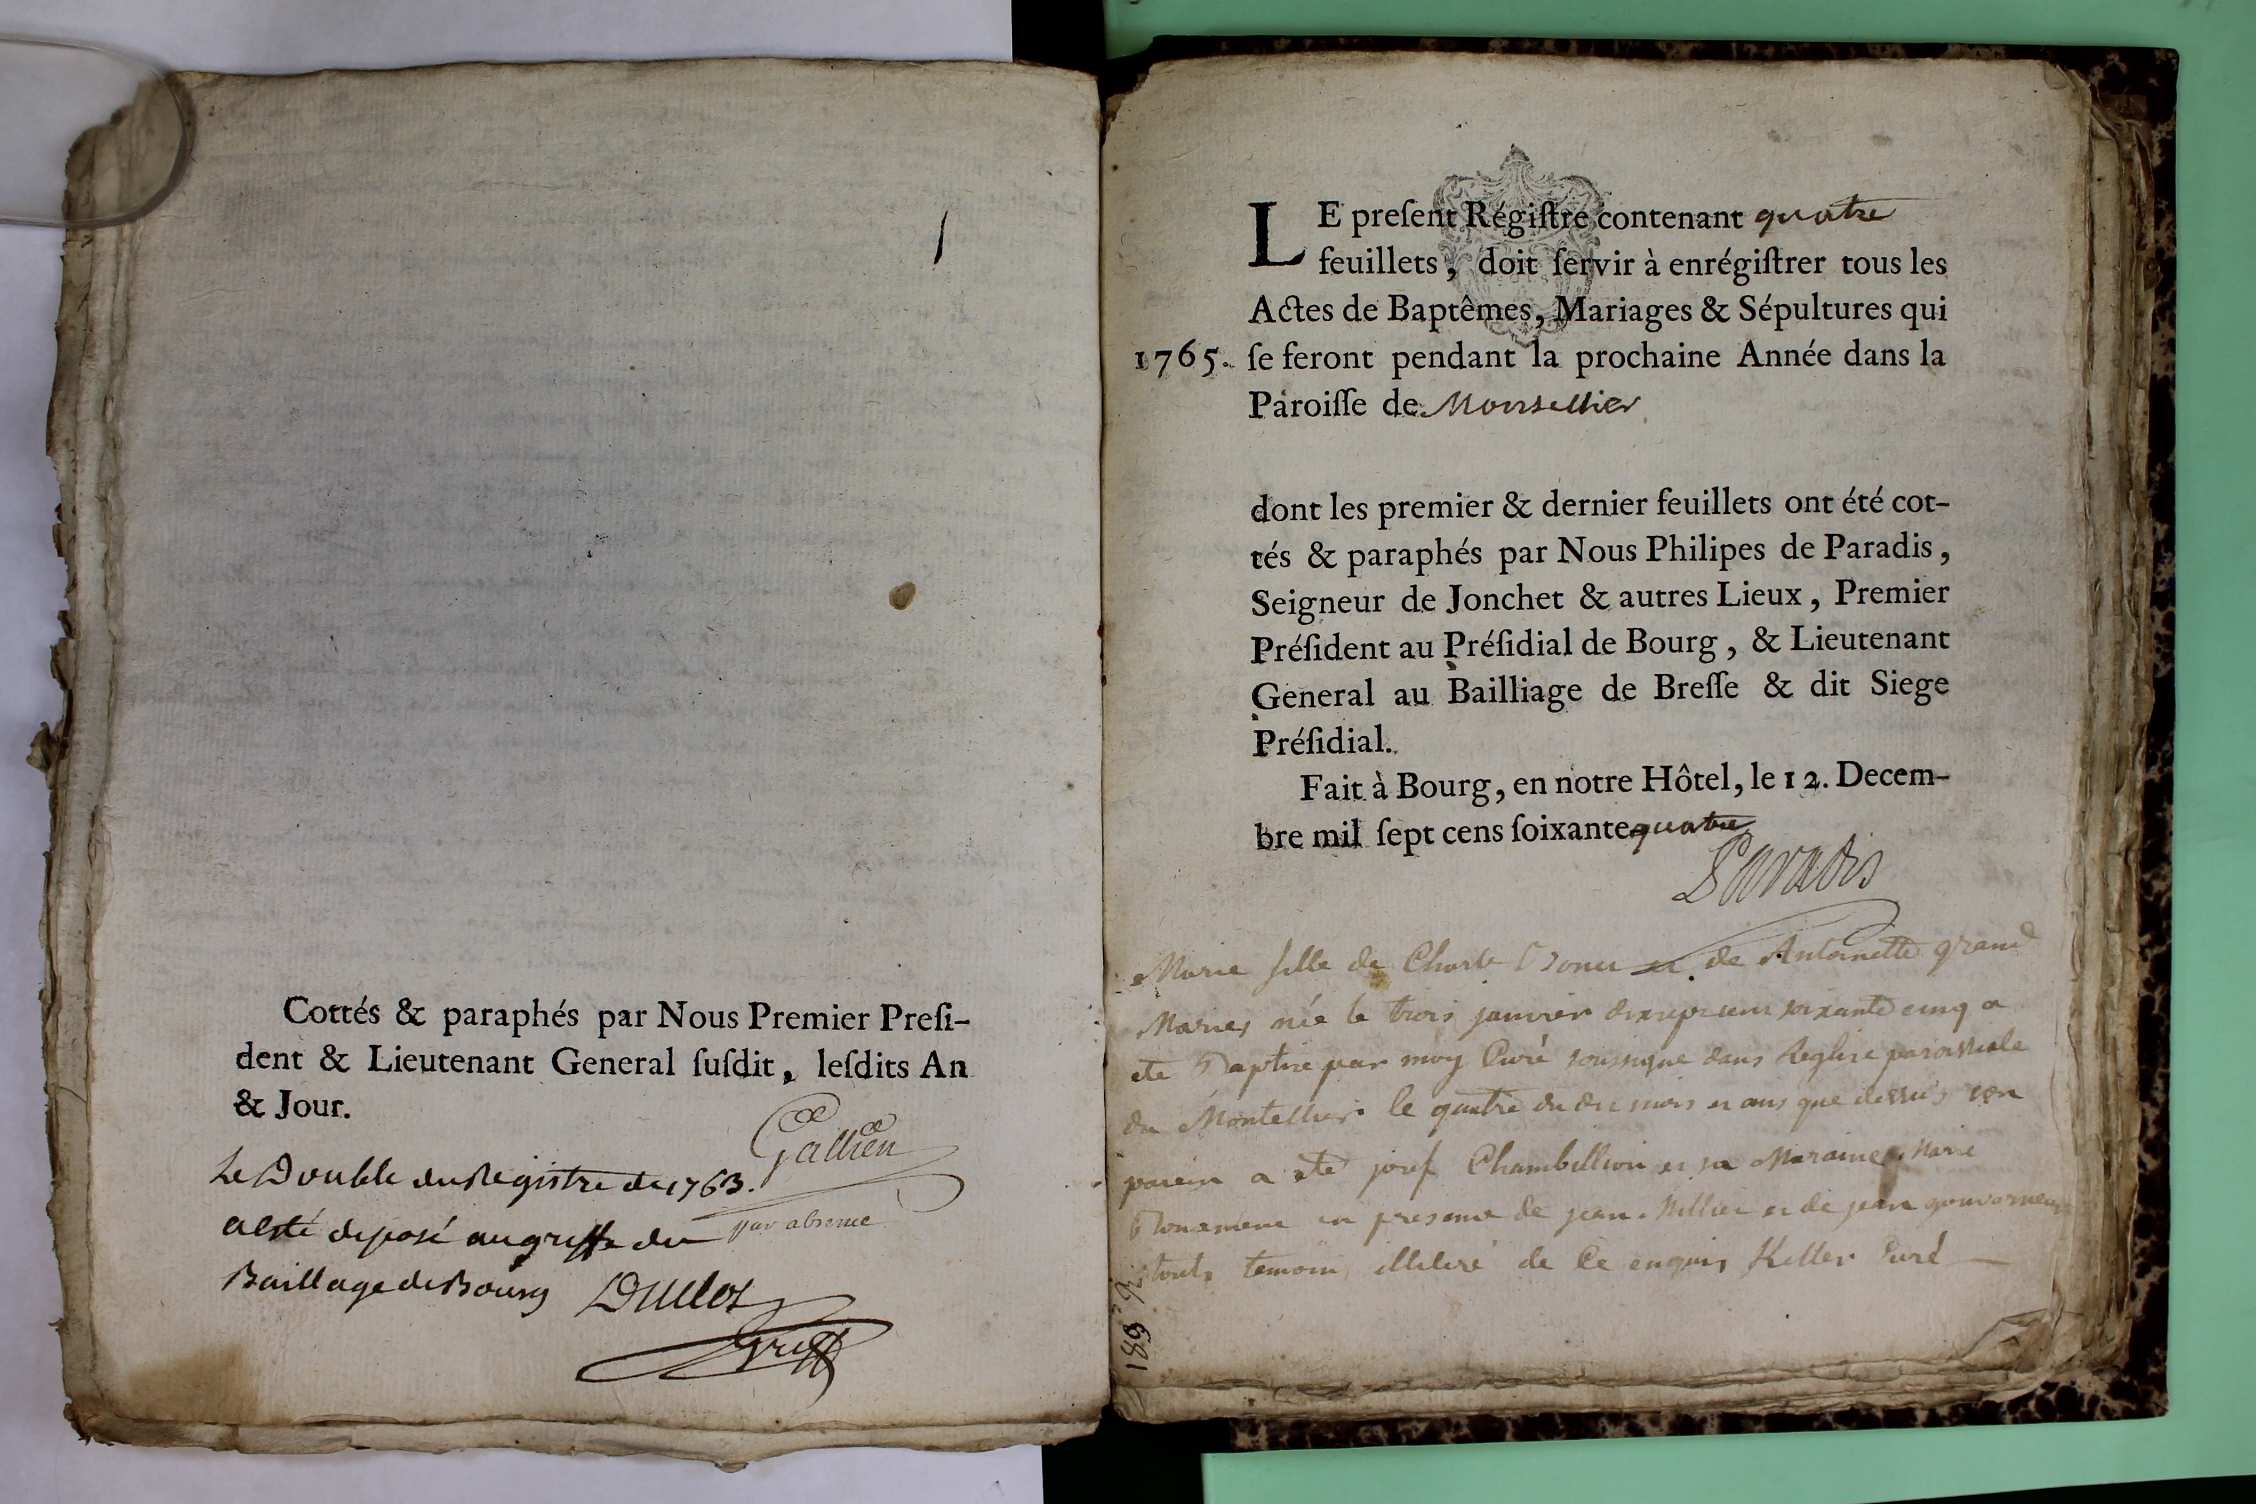 Cottés & paraphés par Nous Premier Preſi-
dent & Lieutenant General ſuſdit, leſdits An
& Jour.
Gallien
par absence
Le Double du Registre de 1763.
a esté deposé au greffe du
Baillage de Bourg Duclos
Greff
LE preſent Régiſtre contenant quatre
feuillets, doit ſervir à enrégiſtrer tous les
Actes de Baptêmes, Mariages & Sépultures qui
1765. ſe feront pendant la prochaine Année dans la
Paroiſſe de Montellier
dont les premier & dernier feuillets ont été cot-
tés & paraphés par Nous Philipes de Paradis,
Seigneur de Jonchet & autres Lieux, Premier
Préſident au Préſidial de Bourg, & Lieutenant
General au Bailliage de Breſſe & dit Siege
Préſidial.
Fait à Bourg, en notre Hôtel, le 12. Decem-
bre mil ſept cens ſoixante quatre
Paradis
Marie fille de Charle et de Antoinette grand
née le trois janvier soixante cinq a
ete par moy Curé soussigné dans leglise paroissiale
du Montellier le quatre du dit mois et ans que dessus son
parein a ete josef Chambellion et sa Maraine Marie
en presence de jean et de jean gouverneur
touts temoin de ce enquis Keller Curé
189